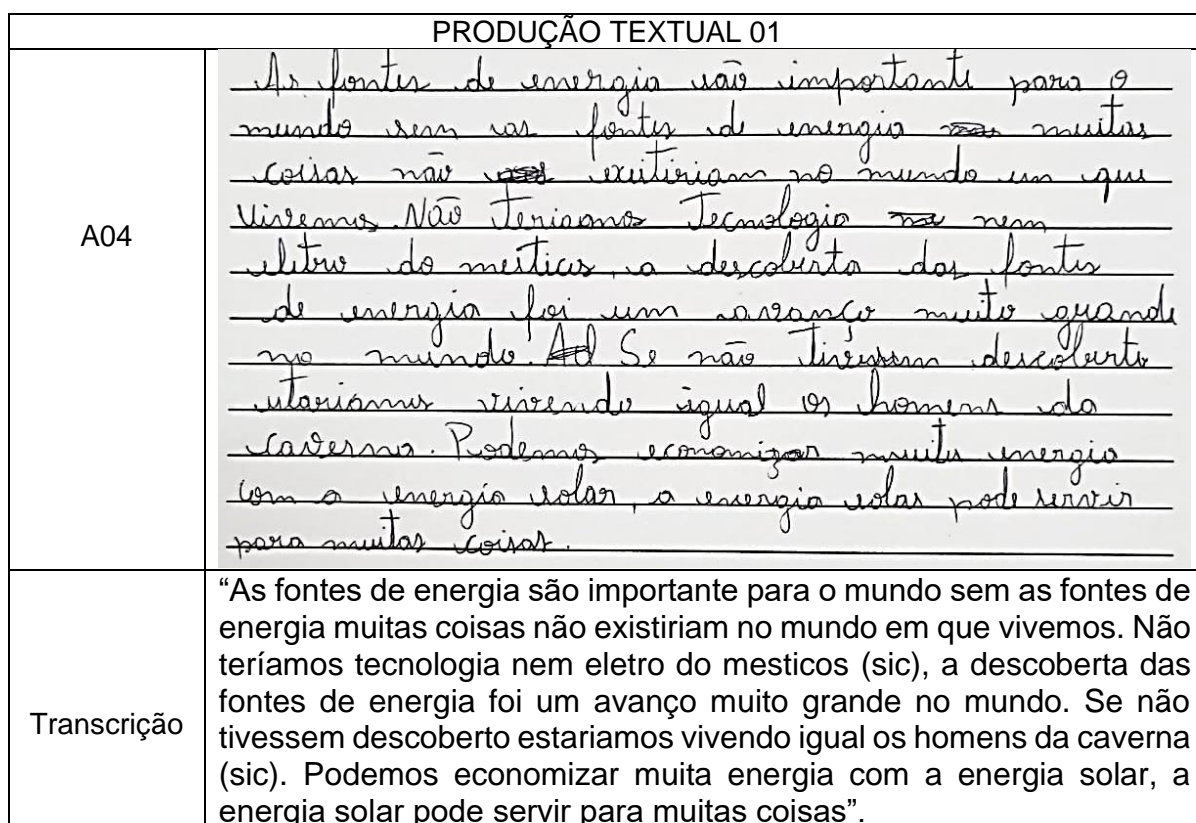 PRODUÇÃO TEXTUAL 01
A04
As fontes de energia são importante para o
mundo sem as fontes de energia muitas
coisas não existiriam no mundo em que
vivemos. Não teriamos Tecnologia nem
eletro do mesticos, a descoberta das fontes
de energia foi um avanço muito grande
no mundo. Se não tivessem descoberto
estariamos vivendo igual os homens da
caverna. Podemos economizar muita energia
com a energia solar, a energia solar pode servir
para muitas coisas.
Transcrição
“As fontes de energia são importante para o mundo sem as fontes de
energia muitas coisas não existiriam no mundo em que vivemos. Não
teríamos tecnologia nem eletro do mesticos (sic), a descoberta das
fontes de energia foi um avanço muito grande no mundo. Se não
tivessem descoberto estariamos vivendo igual os homens da caverna
(sic). Podemos economizar muita energia com a energia solar, a
energia solar pode servir para muitas coisas”.